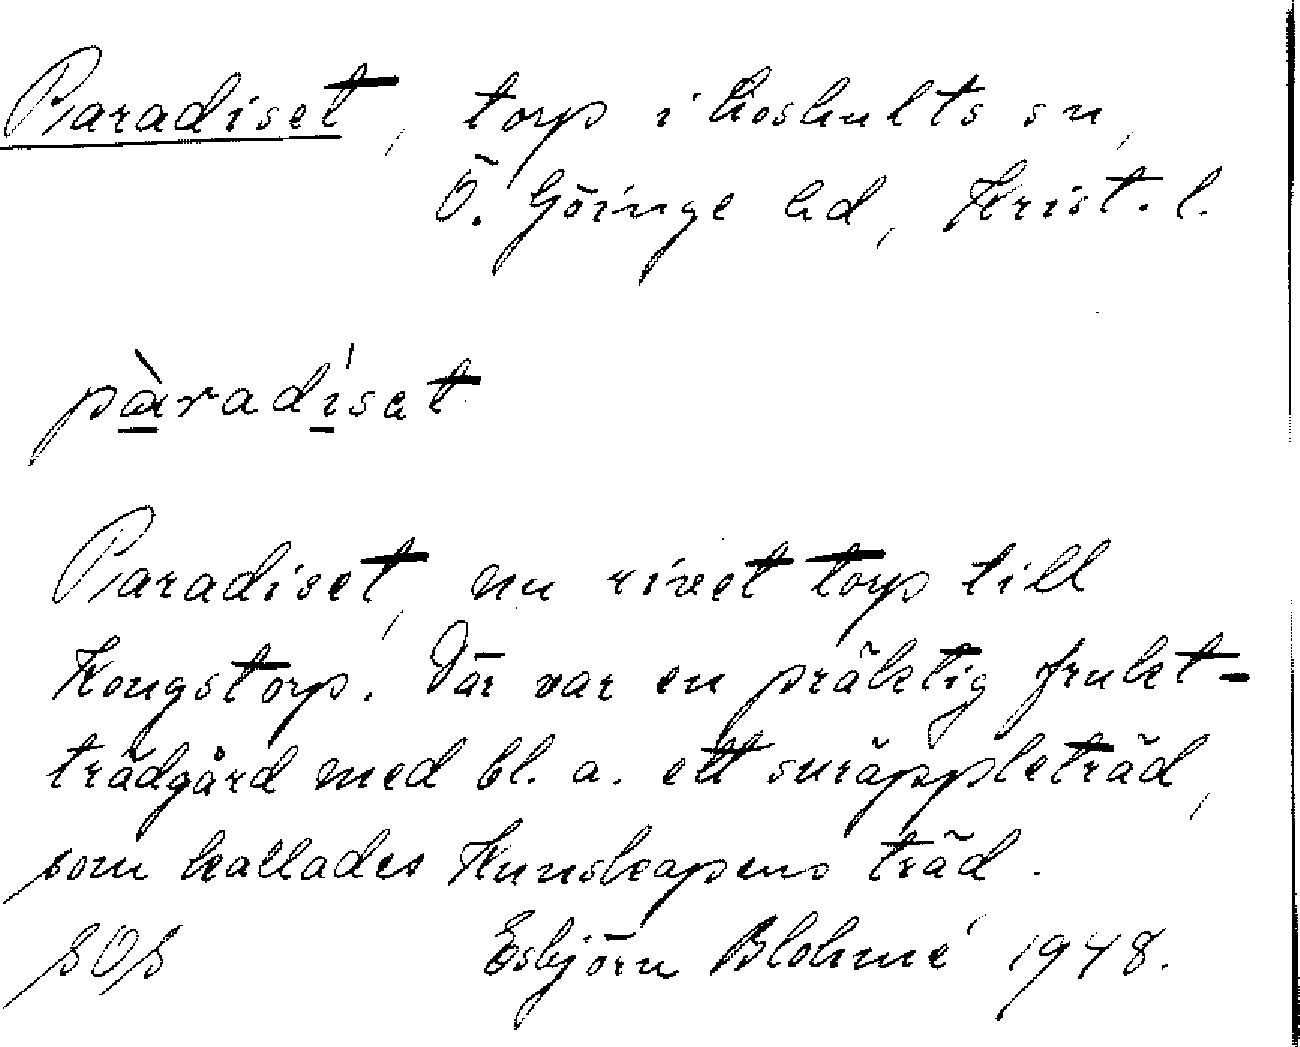 Paradiset, torp i Loshults sn,
Ö. Göinge hd, Krist. l.
pàradíset
Paradiset, nu rivet torp till
Kongstorp. Där var en präktig frukt-
trädgård med bl. a. ett suräppleträd,
som kallades Kunskapens träd.
SOS Esbjörn Blohmé 1948.